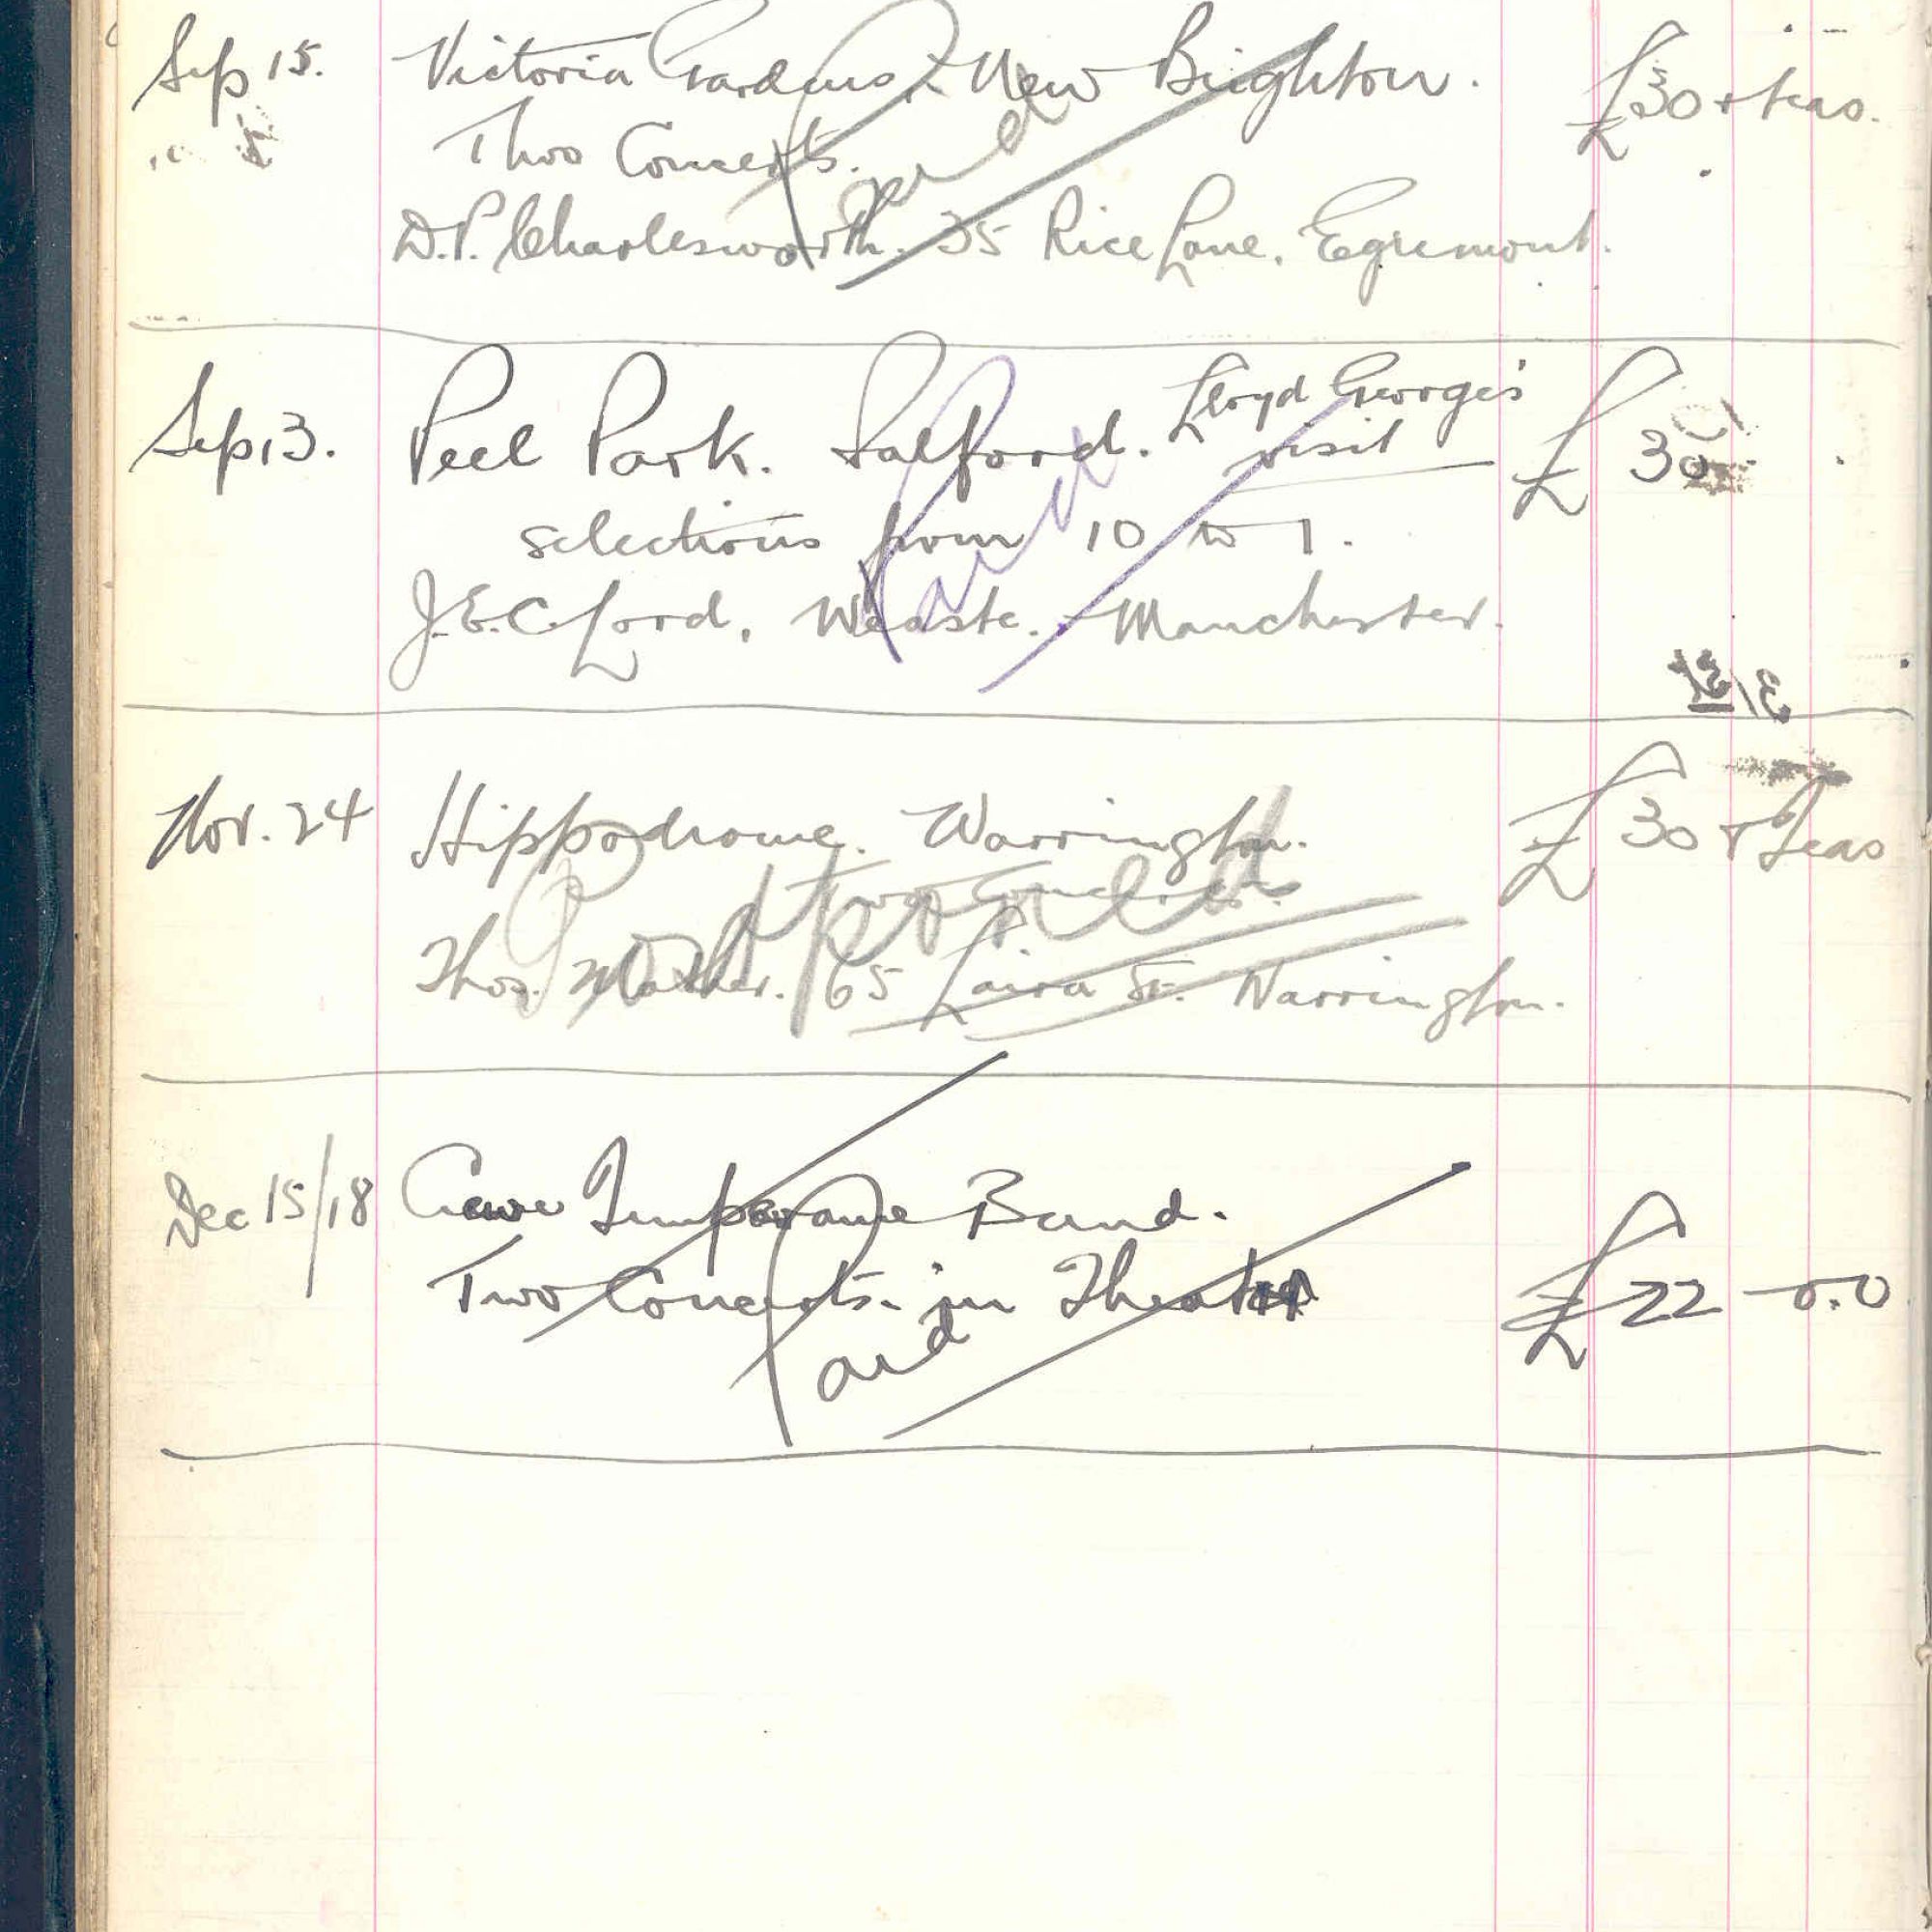 Sep 15. Victoria Gardens. New Brighton. £30 + teas.
Two Concerts.
Paid
D.P. Charlesworth. 35 Rice Lane. Egremont.
Sep 13. Peel Park. Salford. Lloyd George's visit £30
selections from 10 to 1.
Paid
J.E.C. Lord, Weaste. Manchester.
Nov. 24 Hippodrome. Warrington. £30 + Teas
Two Concerts.
Postponed
Thos. Mather. 65 Laira St. Warrington.
Dec 15/18 Crewe Temperance Band.
Two Concerts in Theatre £22-0.0
Paid